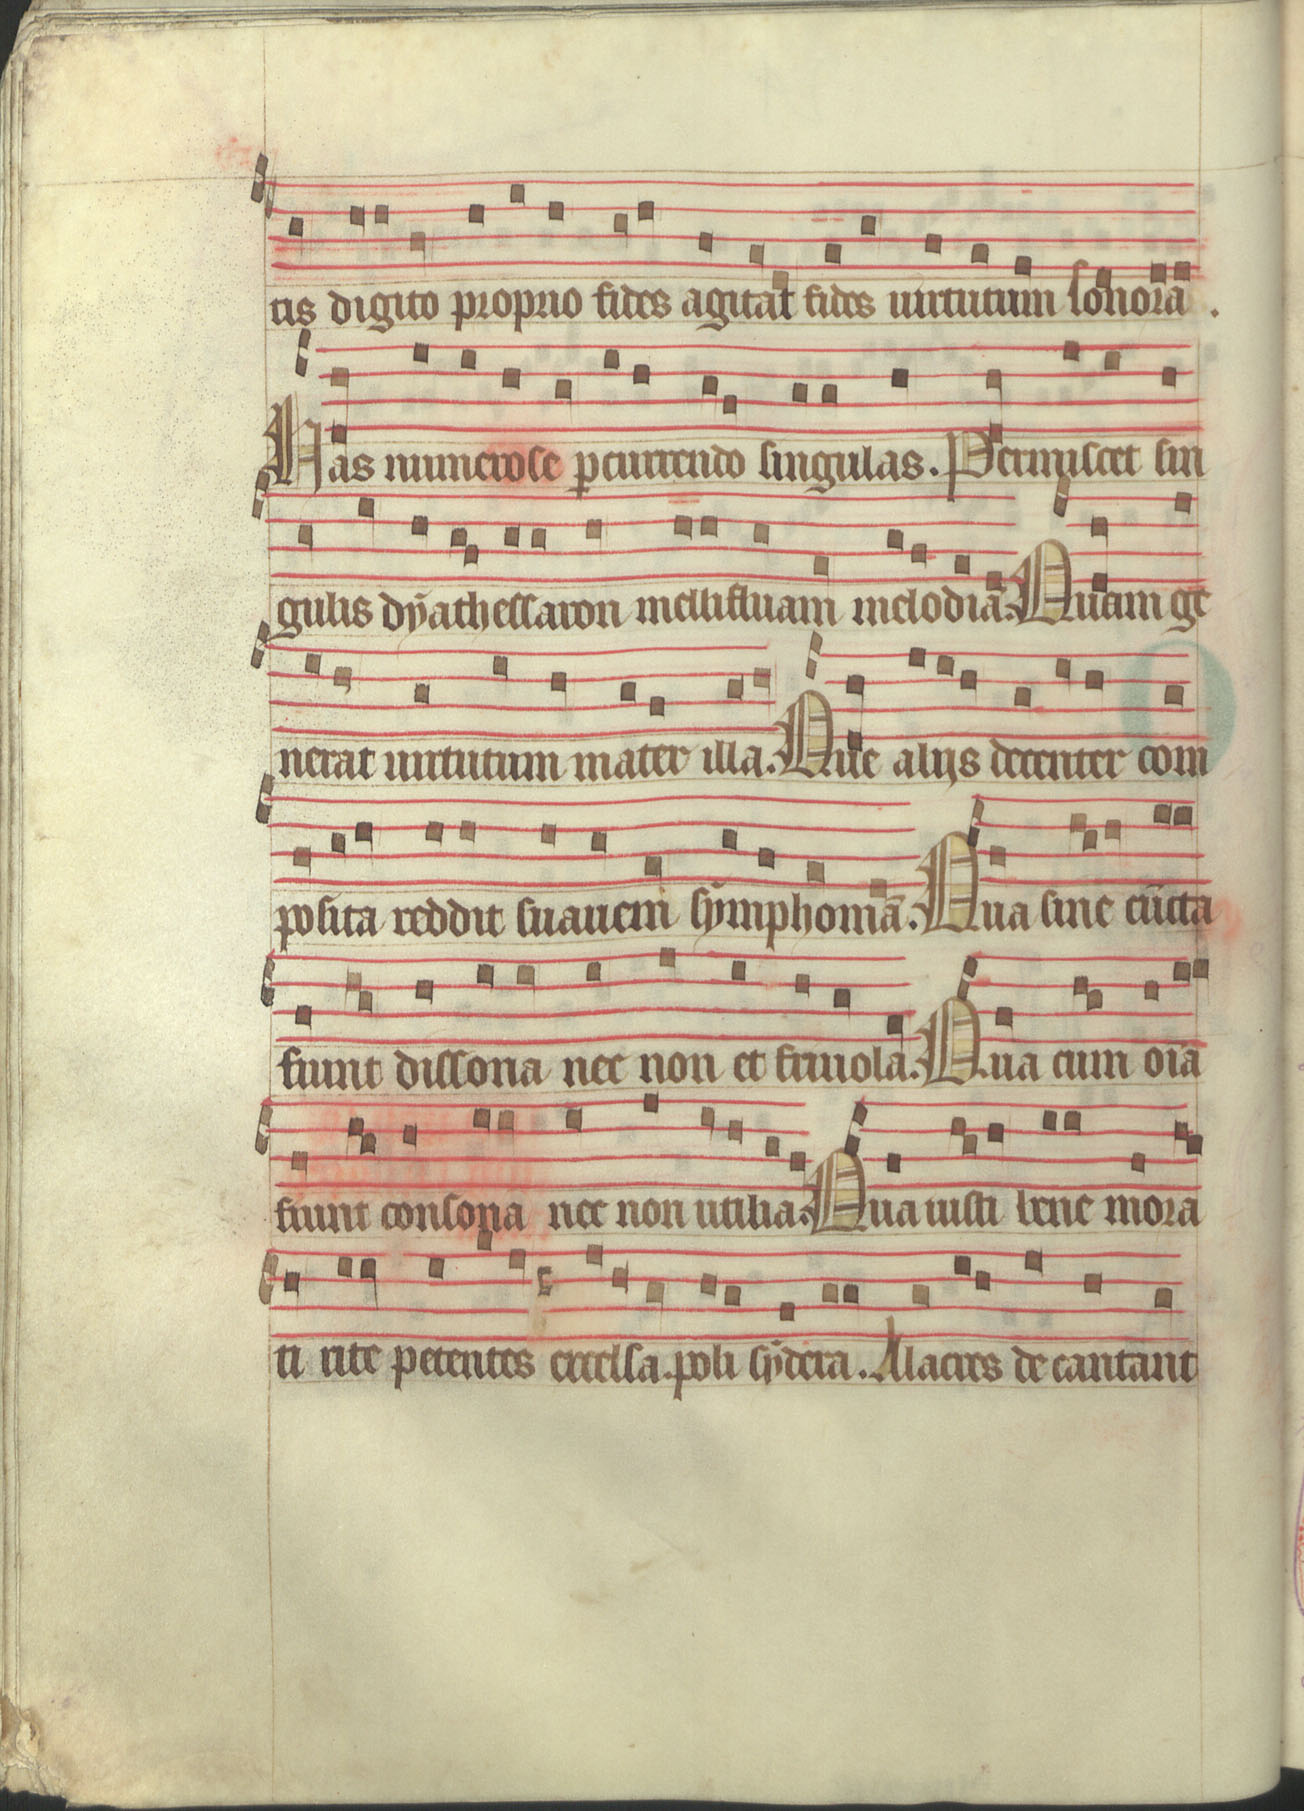 tis digito proprio fides agitat fides uirtutum sonora.
Has numerose pcurrendo singulas. Permiscet sin
gulis dyathessaron mellifluam melodiā. Quam ge
nerat uirtutum mater illa. Que alijs decenter com
posita reddit suauem symphoniā. Qua sine cūcta
fiunt dissona nec non et friuola. Qua cum oīa
fiunt consona nec non utilia. Qua iusti bene mora
ti rite petentes excelsa. poli sydera. Alacres de cantant